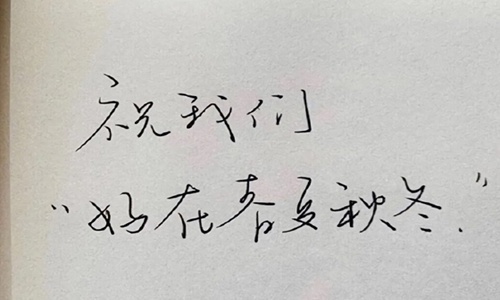 祝我们
“好在春夏秋冬.”